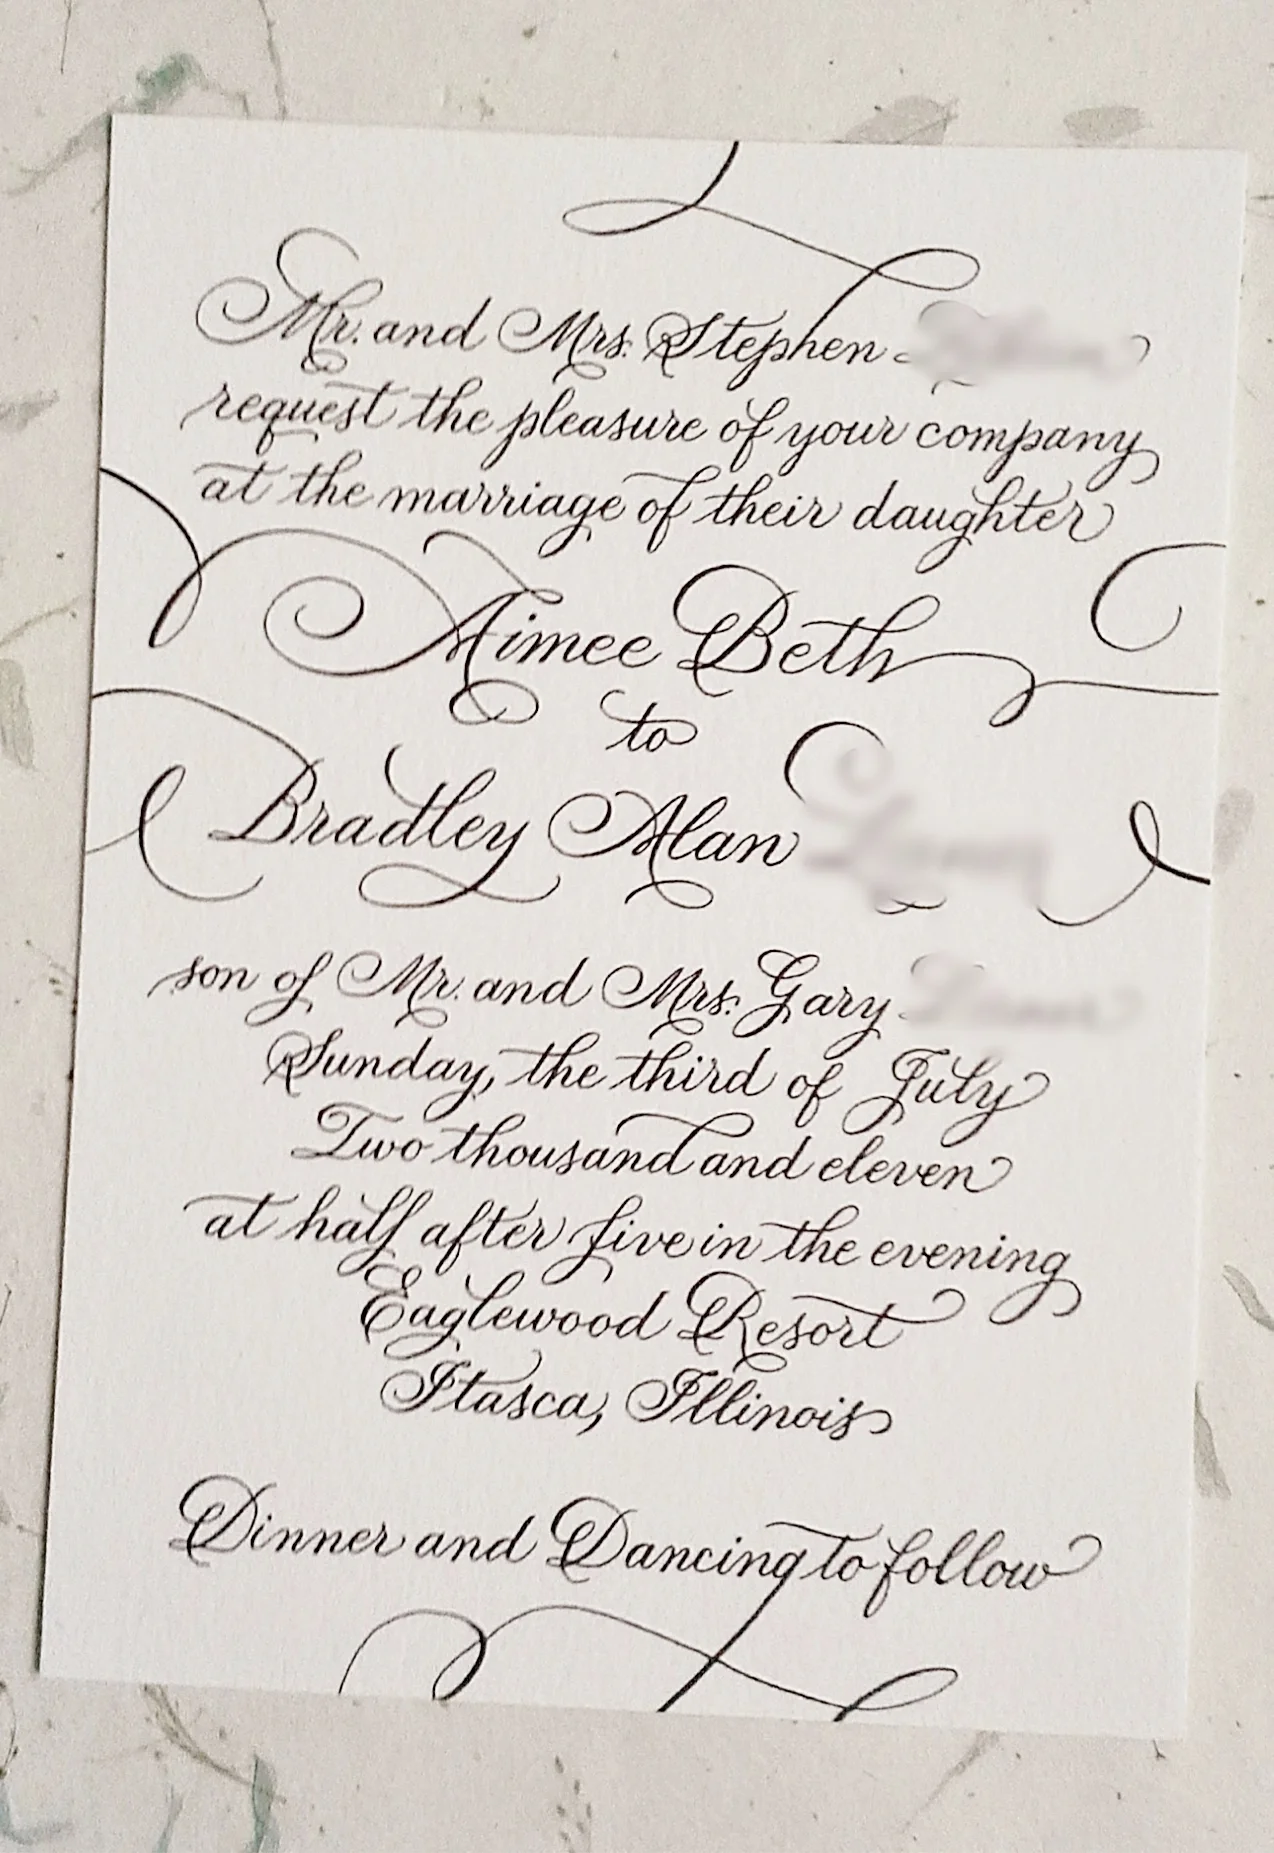 Mr. and Mrs. Stephen
request the pleasure of your company
at the marriage of their daughter
Aimee Beth
to
Bradley Alan
son of Mr. and Mrs. Gary
Sunday, the third of July
Two thousand and eleven
at half after five in the evening
Eaglewood Resort
Itasca, Illinois
Dinner and Dancing to follow